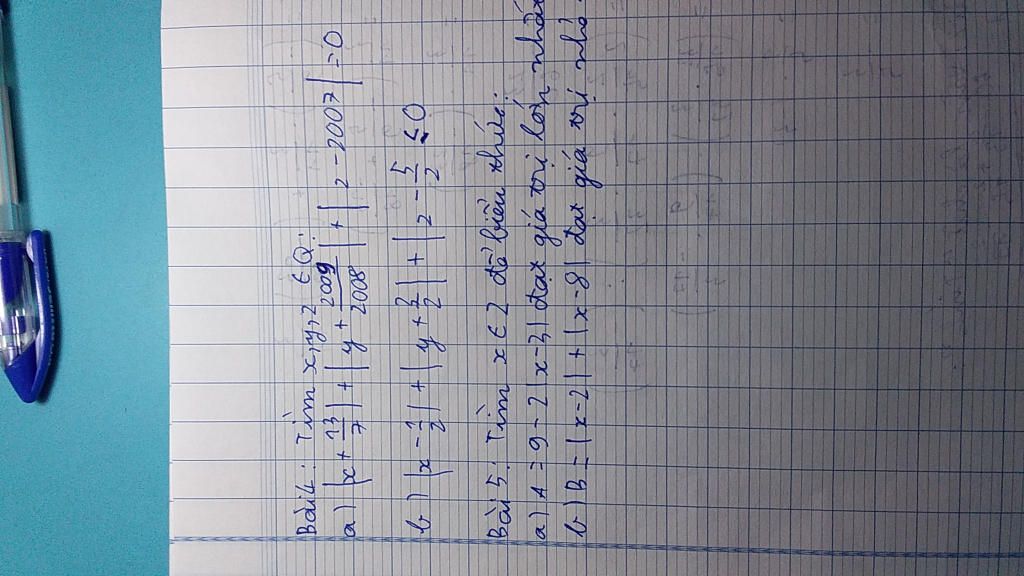 Bài 4: Tìm x, y, z ∈ Q:
a) |x + 13/7| + |y + 2009/2008| + |z - 2007| = 0
b) |x - 1/2| + |y + 3/2| + |z - 5/2 ≤ 0
Bài 5: Tìm x ∈ Z để biểu thức:
a) A = 9 - 2|x - 3| đạt giá trị lớn nhất
b) B = |x - 2| + |x - 8| đạt giá trị nhỏ